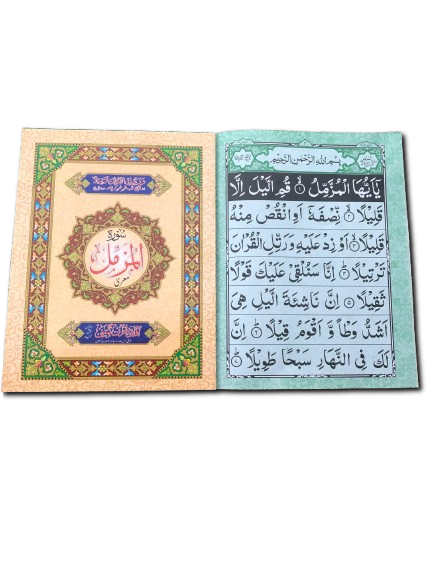 سورۃ
المزمل
معریٰ
بِسْمِ اللهِ الرَّحْمٰنِ الرَّحِيْمِ
يٰۤاَيُّهَا الْمُزَّمِّلُ ۙ۱ قُمِ الَّيْلَ اِلَّا
قَلِيْلًا ۙ۲ نِّصْفَهٗۤ اَوِ انْقُصْ مِنْهُ
قَلِيْلًا ۙ۳ اَوْ زِدْ عَلَيْهِ وَرَتِّلِ الْقُرْاٰنَ
تَرْتِيْلًا ؕ۴ اِنَّا سَنُلْقِيْ عَلَيْكَ قَوْلًا
ثَقِيْلًا ۵ اِنَّ نَاشِئَةَ الَّيْلِ هِيَ
اَشَدُّ وَطْاً وَّ اَقْوَمُ قِيْلًا ؕ۶ اِنَّ
لَكَ فِي النَّهَارِ سَبْحًا طَوِيْلًا ؕ۷